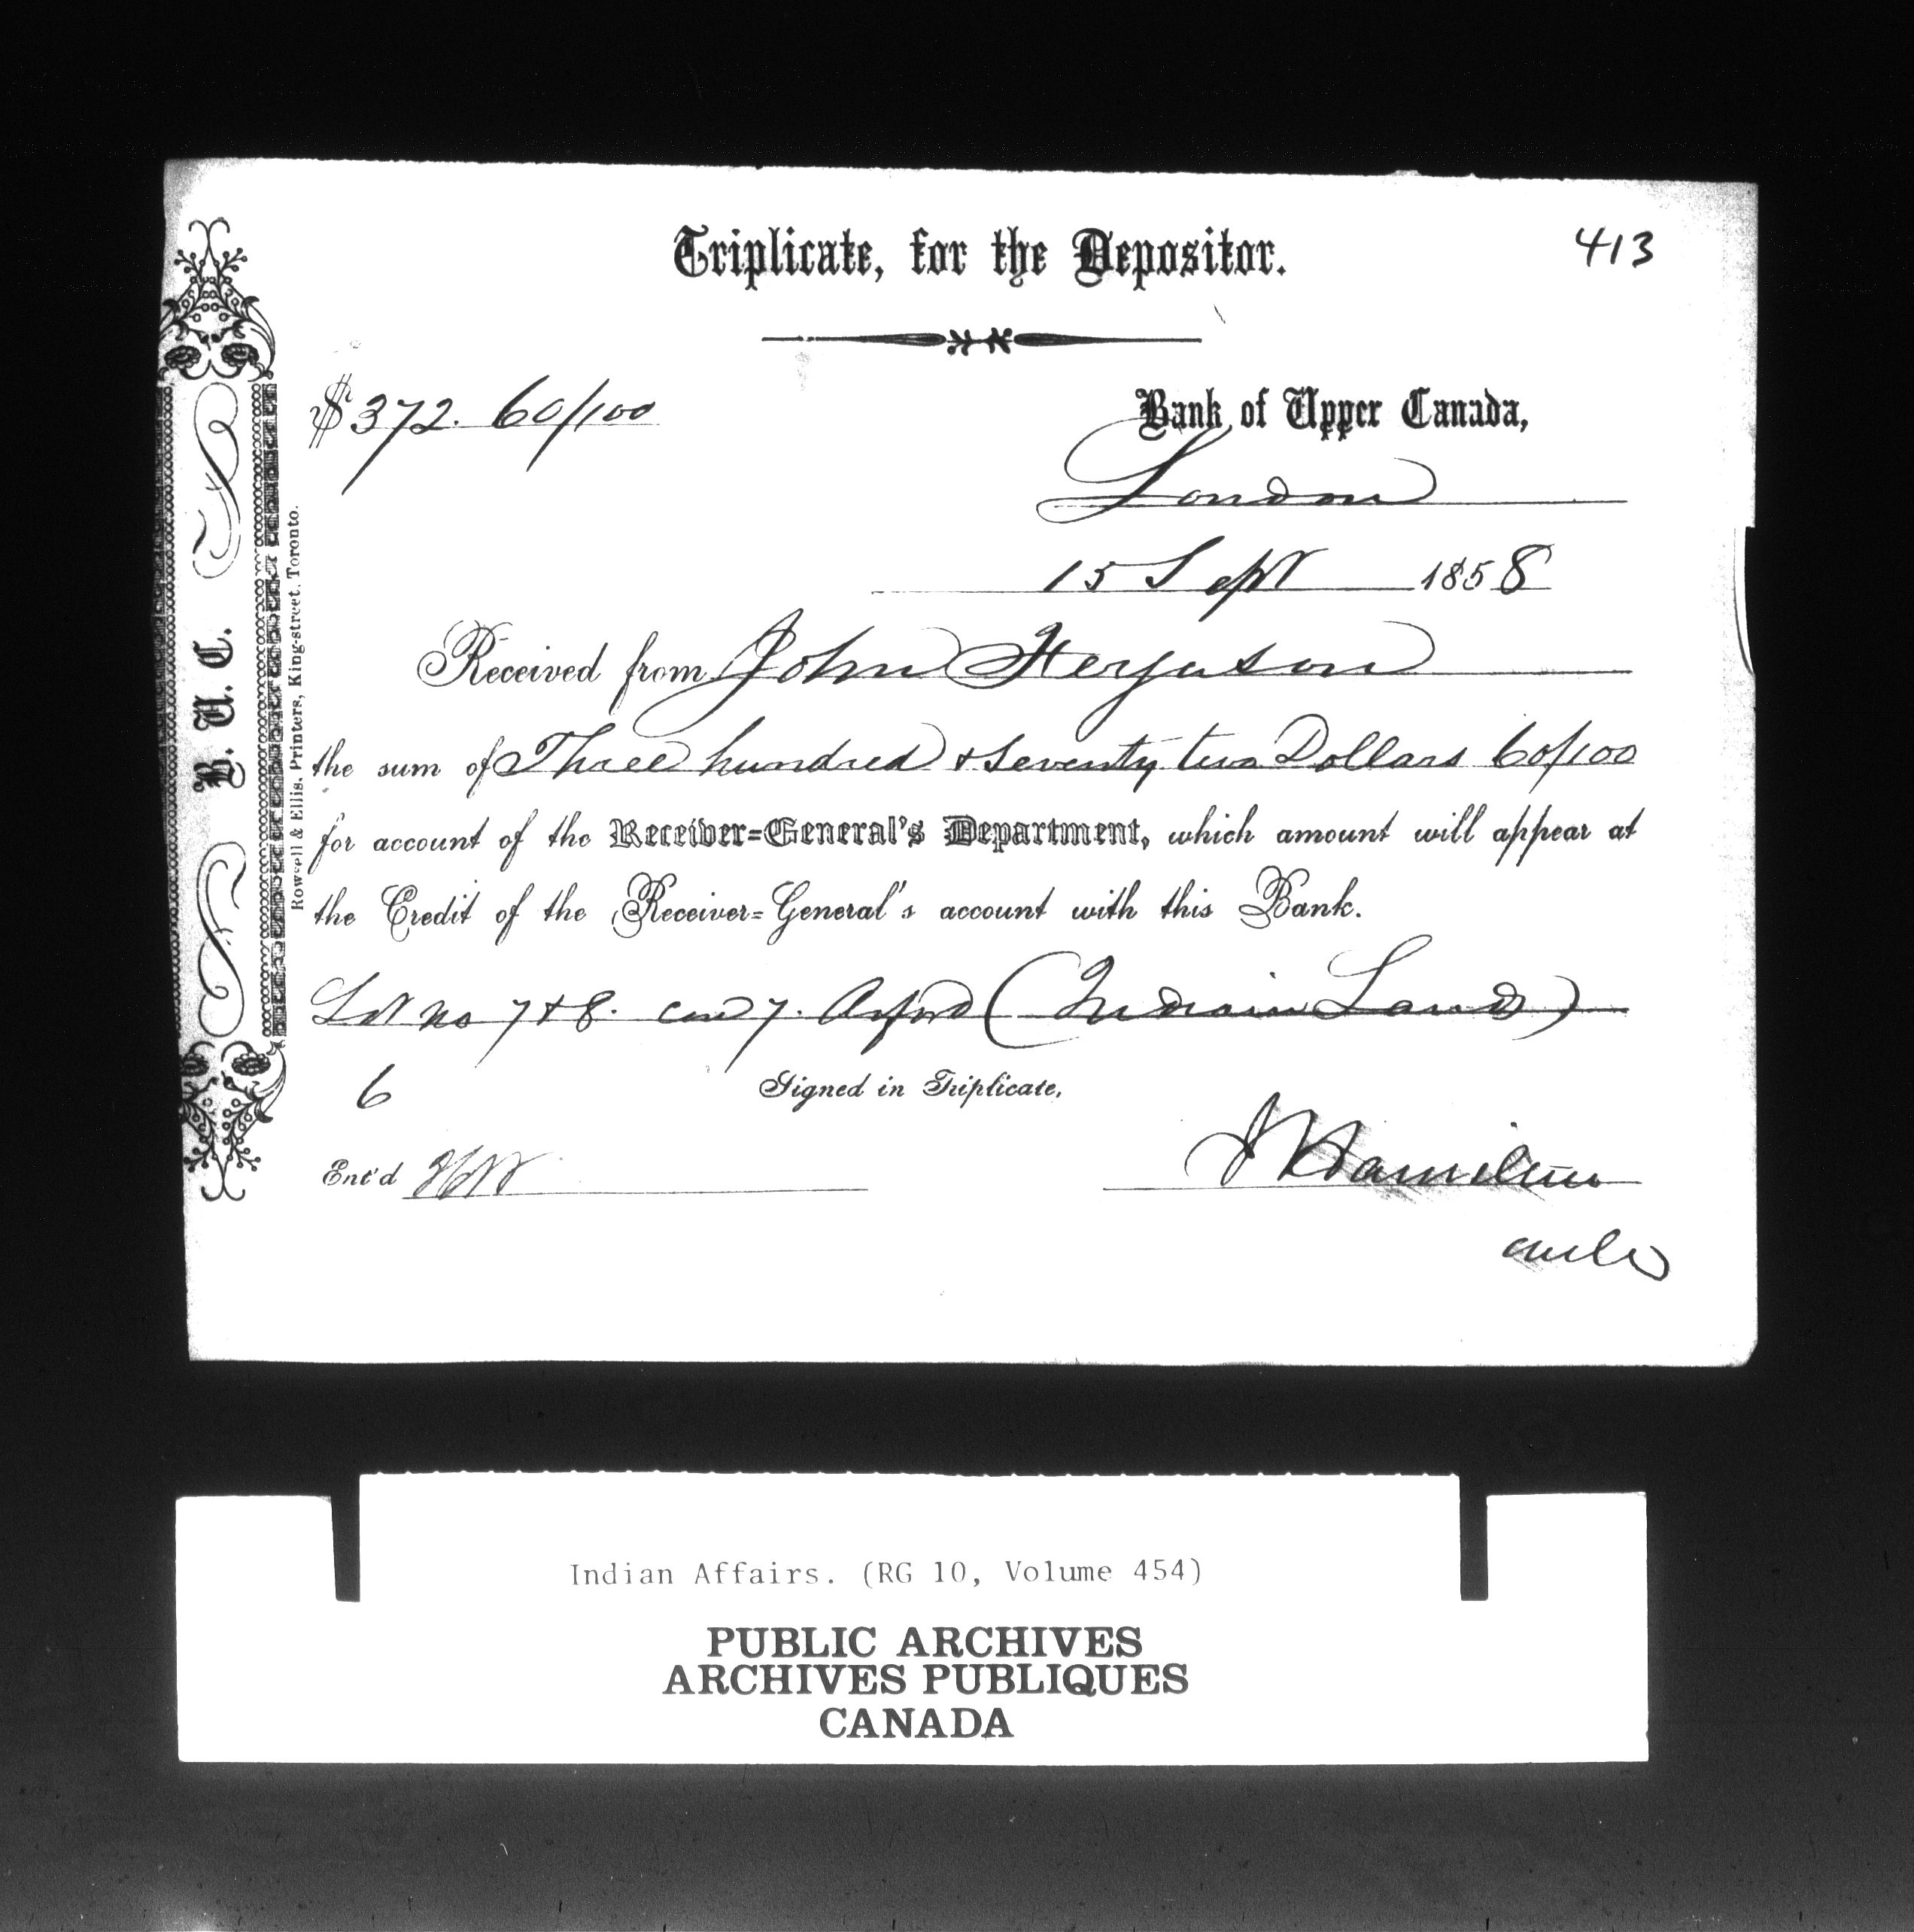 Triplicate, for the Depositor.
413
$372. 60/100
Bank of Upper Canada,
London
15 Sept 1858
Received from John Ferguson
the sum of Three hundred & Seventy two Dollars 60/100
for account of the Receiver=General's Department, which amount will appear at
the Credit of the Receiver=General's account with this Bank.
Lot no 7 & 8. con 7. Orford (Indian Lands)
6
Signed in Triplicate,
Ent'd
J Hamilton
B. U. C.
Rowsell & Ellis, Printers, King-street, Toronto.
Indian Affairs. (RG 10, Volume 454)
PUBLIC ARCHIVES
ARCHIVES PUBLIQUES
CANADA